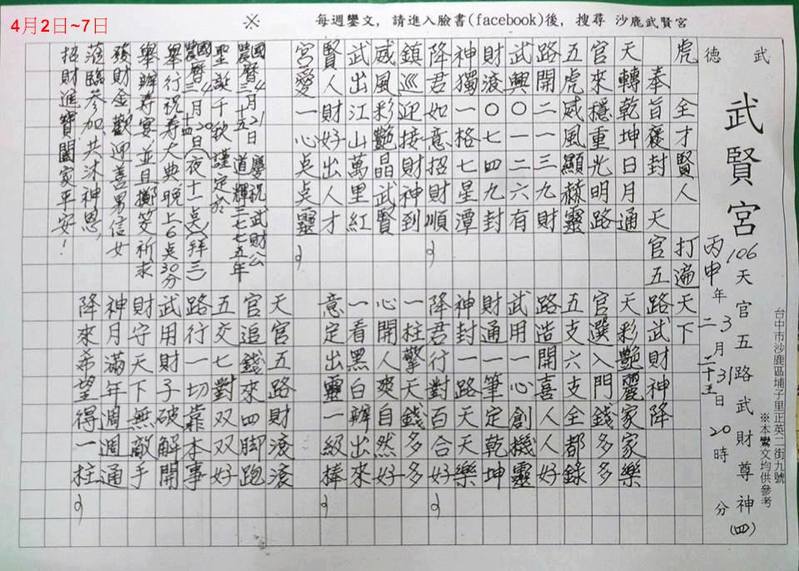 4月2日~7日
※ 每週鑾文, 請進入臉書(facebook)後, 搜尋 沙鹿武賢宮
武德
武賢宮 106天官五路武財尊神(四)
丙申年3月31日20時 分
二 二十五
台中市沙鹿區埔子里正英二街九號
※本鸞文均供參考
虎 全才賢人 打遍天下
奉旨褒封 天官五路武財神降
天轉乾坤日月通
官來穩重光明路
五虎威風顯赫靈
路開二一三九財
武興〇一二六有
財渡〇七四九封
神獨一格七星潭
降君如意招財順
鎮巡迎接財神到
威風彩艷晶武賢
武出江山萬里紅
賢人財好出人才
宮愛一心点点靈
國曆4月21日 慶祝武財公
農曆三 十五 道輝二七七五年
聖誕千秋謹定於
國曆4月20日夜十一点(拜三)
農曆三 十四
舉行祝壽大典晚上6点30分
舉辦壽宴並且擲筊祈求
發財金歡迎善男信女
蒞臨參加共沐神恩,
招財進寶闔家平安!
天彩艷靈家家樂
官選入門錢多多
五支六支全都錄
路造開喜人人好
武用一心創機靈
財通一筆定乾坤
神封一路天天樂
降君行對百合好
一柱擎天錢多多
心開人爽自然好
一看黑白辦出來
意定出靈一級棒
天官五路財滾滾
官追錢來四脚跑
五交七對双双好
路行一切靠本事
武用財子破解開
財守天下無敵手
神月滿年週週通
降來希望得一柱